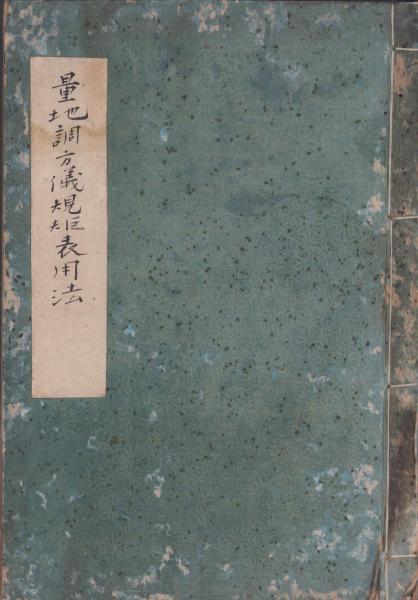 量地調方儀規矩表用法